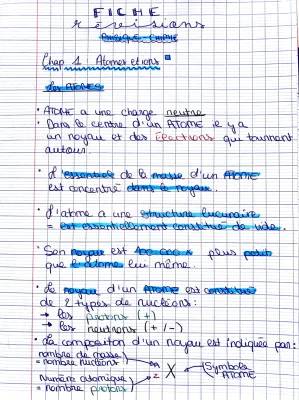 FICHE
révisions
PHYSIQUE - CHIMIE
Chap 1 : Atomes et ions
Les ATOMES
• ATOME a une charge neutre
• Dans le centre d'un ATOME il y a
un noyau et des électrons qui tournent
autour.
• L'essentiel de la masse d'un ATOME
est concentré dans le noyau.
• L'atome a une structure lacunaire
= est essentiellement constitué de vide.
• Son noyau est 100 000 x plus petit
que l'atome lui même.
• Le noyau d'un ATOME est constitué
de 2 types de nucléons :
→ les protons (+)
→ les neutrons (+ / -)
• La composition d'un noyau est indiquée par :
nombre de masse
= nombre nucléons
A
X
Symbole
ATOME
Numéro atomique
= nombre protons
Z